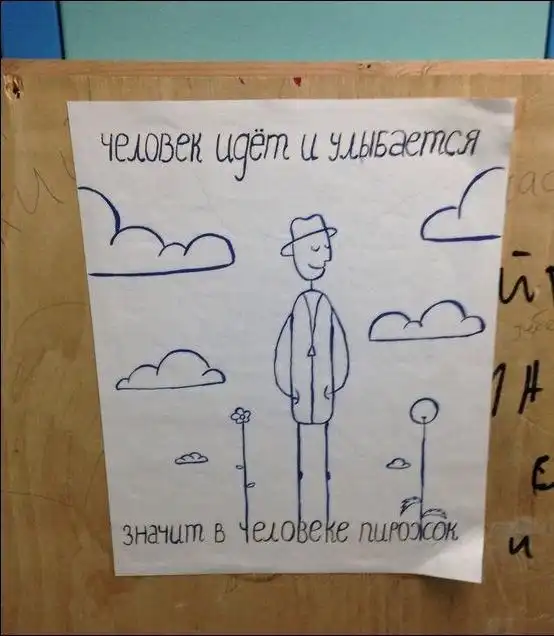 человек идёт и улыбается
значит в человеке пирожок